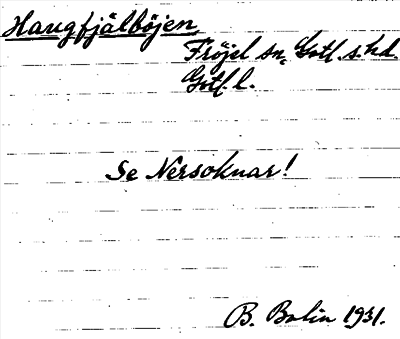 Haugfjälböjen,
Fröjel sn, Gotl. s. hd.
Gotl. l.
Se Nersoknar!
B. Bolin 1931.